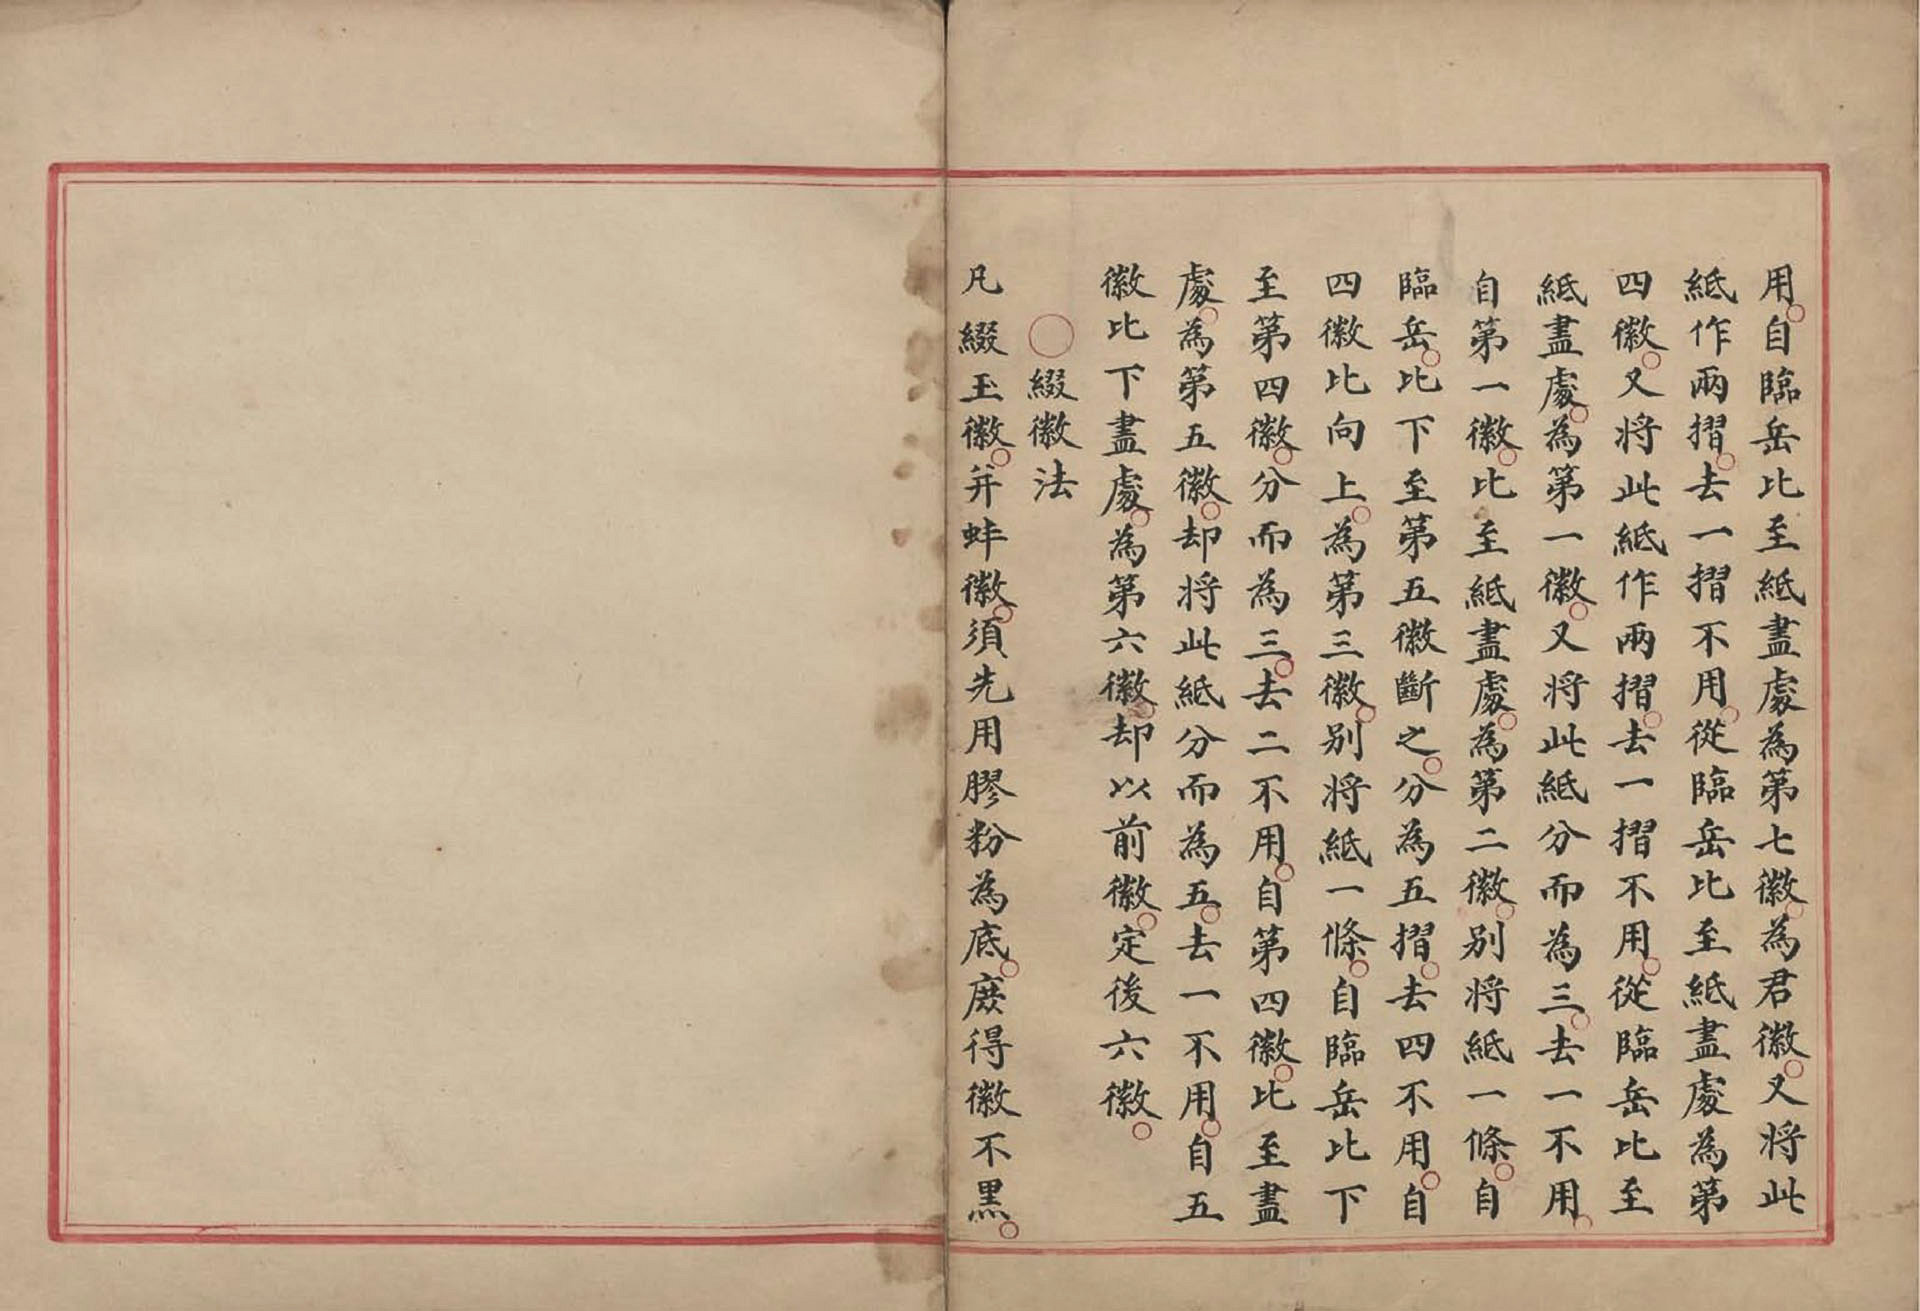 用。自臨岳比至紙盡處為第七徽。為君徽。又將此
紙作兩摺。去一摺不用。從臨岳比至紙盡處為第
四徽。又將此紙作兩摺。去一摺不用。從臨岳比至
紙盡處。為第一徽。又將此紙分而為三。去一不用。
自第一徽。比至紙盡處。為第二徽。別將紙一條。自
臨岳。比下至第五徽斷之。分為五摺。去四不用。自
四徽比向上。為第三徽。別將紙一條。自臨岳比下
至第四徽。分而為三。去二不用。自第四徽。比至盡
處。為第五徽。却將此紙分而為五。去一不用。自五
徽比下盡處。為第六徽。却以前徽。定後六徽。
〇綴徽法
凡綴玉徽。并蚌徽。須先用膠粉為底。庶得徽不黑。